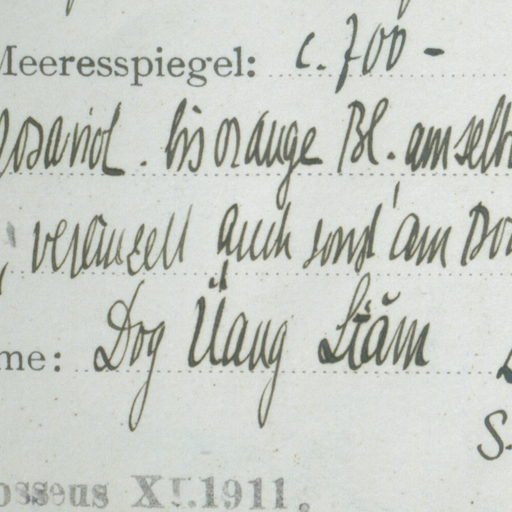 Meeresspiegel: c. 700 –
rosaviol. bis orange Bl. am selb
, vereinzelt auch sonst am Bo
me: Dog Üang Liăm
S.
osseus XI.1911.